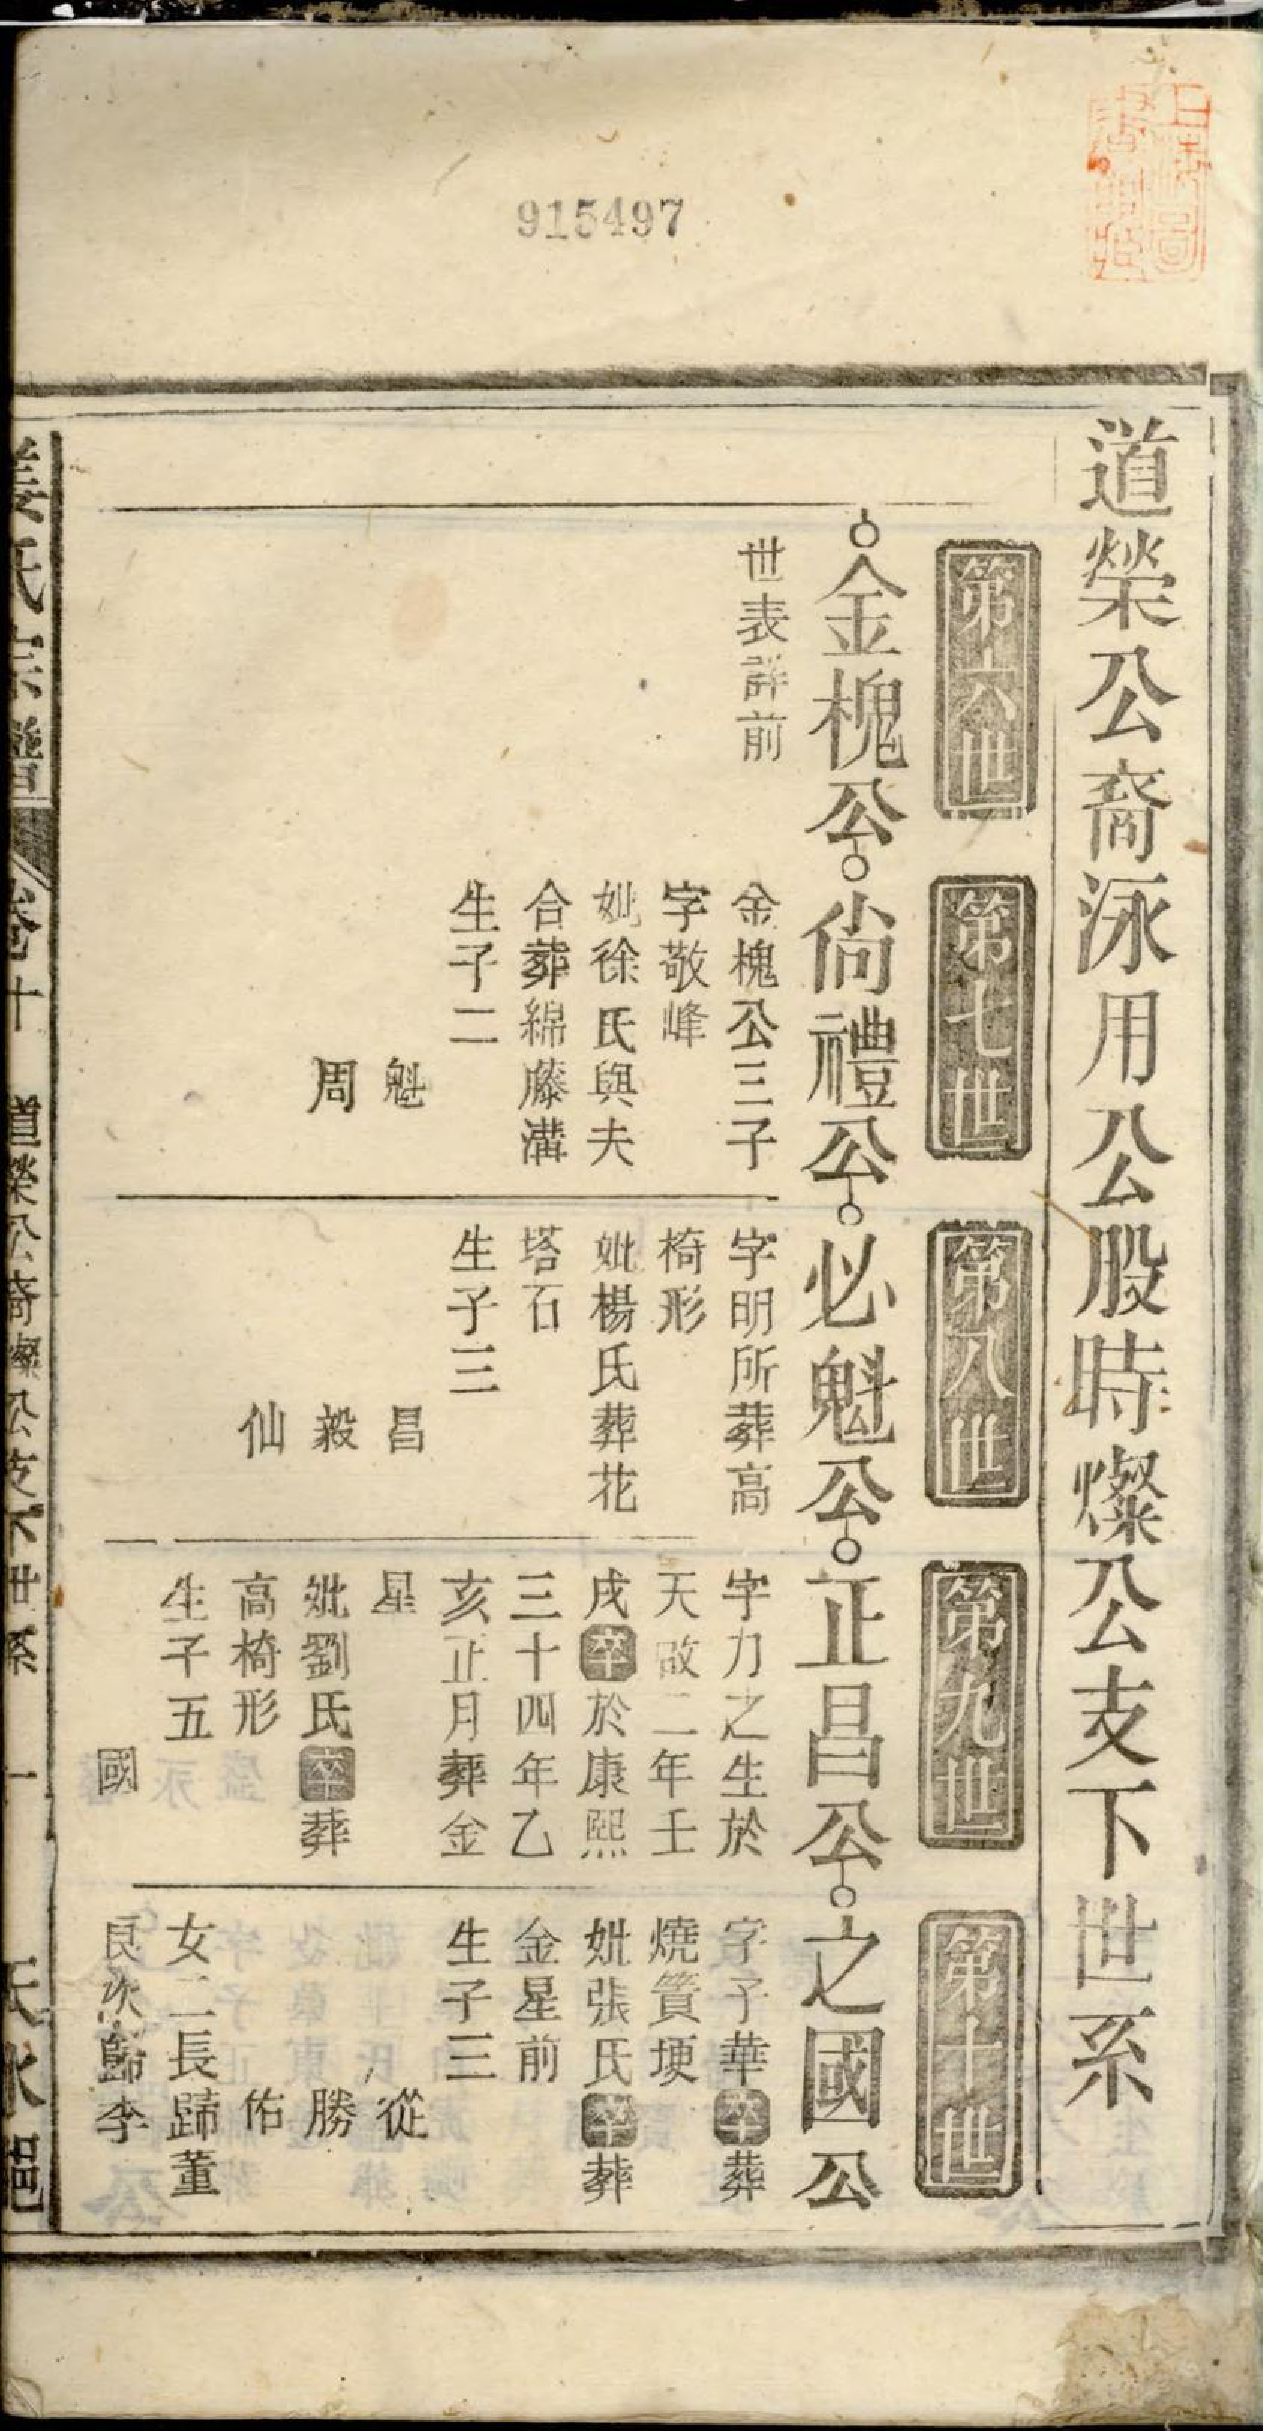 915497
道榮公裔泳用公股時燦公支下世系
第六世
金槐公
世表詳前
第七世
尙禮公
金槐公三子
字敬峰
妣徐氏與夫
合葬綿藤溝
生子二
魁
周
第八世
必魁公
字明所葬高
椅形
妣楊氏葬花
塔石
生子三
昌
毅
仙
第九世
正昌公
字力之生於
天啟二年壬
戌卒於康熙
三十四年乙
亥正月葬金
星
妣劉氏卒葬
高椅形
生子五
國
第十世
之國公
字子華卒葬
燒簣埂
妣張氏卒葬
金星前
生子三
從
勝
佑
女二長歸董
良次歸李
姜氏宗譜 卷十 道榮公裔燦公支下世系 一